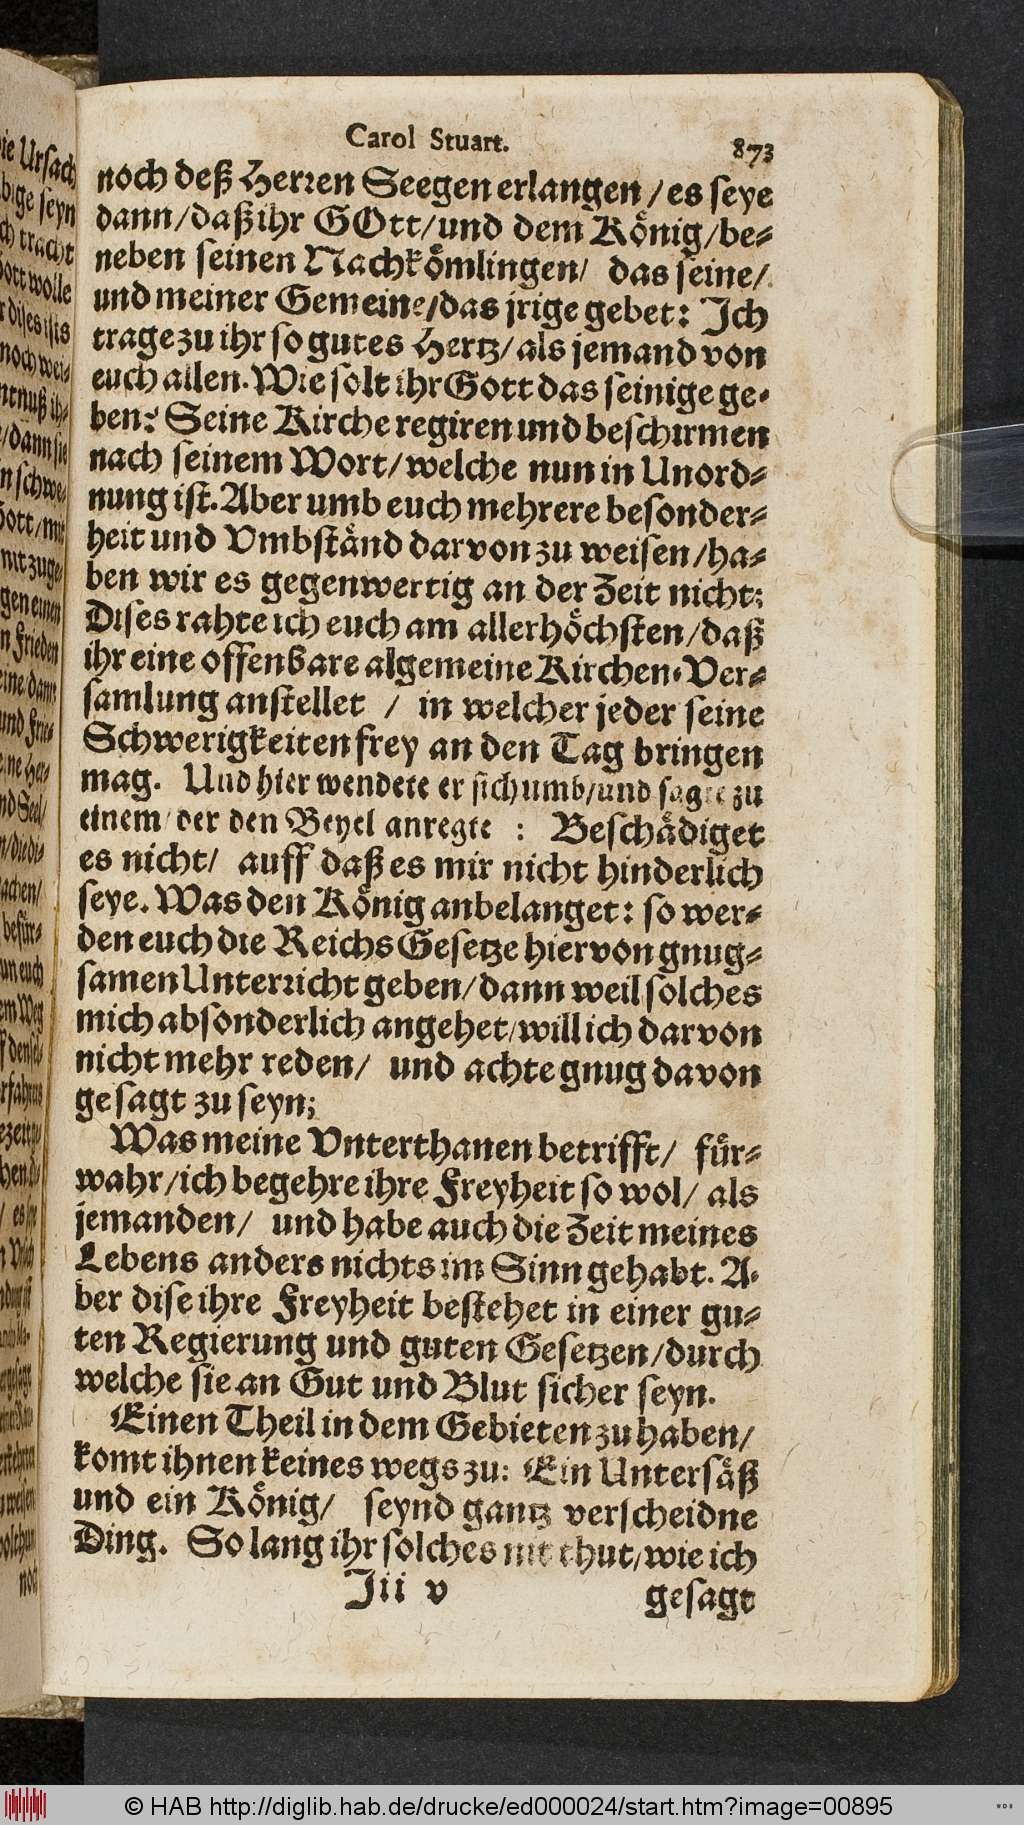 Carol Stuart. 873
noch deß Herren Seegen erlangen / es seye
dann / daß ihr GOtt / und dem König / be-
neben seinen Nachkömlingen / das seine /
und meiner Gemeine / das jrige gebet: Ich
trage zu ihr so gutes Hertz / als jemand von
euch allen. Wie solt ihr Gott das seinige ge-
ben? Seine Kirche regiren und beschirmen
nach seinem Wort / welche nun in Unord-
nung ist. Aber umb euch mehrere besonder-
heit und Vmbständ darvon zu weisen / ha-
ben wir es gegenwertig an der Zeit nicht:
Dises rahte ich euch am allerhöchsten / daß
ihr eine offenbare algemeine Kirchen-Ver-
samlung anstellet / in welcher jeder seine
Schwerigkeiten frey an den Tag bringen
mag. Und hier wendete er sich umb / und sagte zu
einem / der den Beyel anregte : Beschädiget
es nicht / auff daß es mir nicht hinderlich
seye. Was den König anbelanget: so wer-
den euch die Reichs Gesetze hiervon gnug-
samen Unterricht geben / dann weil solches
mich absonderlich angehet / will ich darvon
nicht mehr reden / und achte gnug davon
gesagt zu seyn;
Was meine Vnterthanen betrifft / für-
wahr / ich begehre ihre Freyheit so wol / als
jemanden / und habe auch die Zeit meines
Lebens anders nichts im Sinn gehabt. A-
ber dise ihre Freyheit bestehet in einer gu-
ten Regierung und guten Gesetzen / durch
welche sie an Gut und Blut sicher seyn.
Einen Theil in dem Gebieten zu haben /
komt ihnen keines wegs zu: Ein Untersäß
und ein König / seynd gantz verscheidne
Ding. So lang ihr solches nit thut / wie ich
Iii v gesagt
© HAB http://diglib.hab.de/drucke/ed000024/start.htm?image=00895